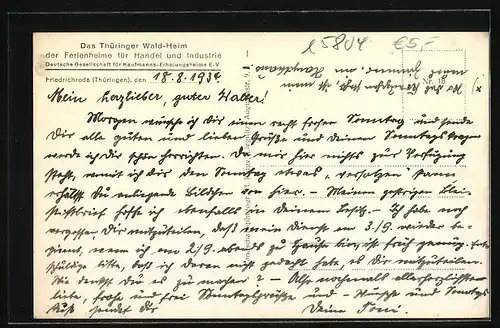 Das Thüringer Wald-Heim
der Ferienheime für Handel und Industrie
Deutsche Gesellschaft für Kaufmanns-Erholungsheime E.V.
Friedrichroda (Thüringen), den 18.8.1934
e5804 €5,-
Nr. 16
Mein herzlieber, guter Walter!
Morgen wünsche ich Dir einen recht frohen Sonntag und sende
Dir alle guten und lieben Grüße und Deinen Sonntags
werde ich Dir schon herrichten. Da mir hier nichts zur Verfügung
steht, womit ich Dir den Sonntag etwas "versolzen" kann
erhältst Du anliegende Bildchen von hier. - Meinen gestrigen Blei-
stiftbrief hoffe ich ebenfalls in Deinem Besitz. - Ich habe noch
vergessen Dir mitzuteilen, daß mein Dienst am 3./9. wieder be-
ginnt, wenn ich am 2./9. abends zu Hause bin, ist früh genug. Ent-
schuldige bitte, daß ich daran nicht gedacht habe, es Dir mitzuteilen.
Wie denkst Du es zu machen? - Also nochmals allerherzlichsten
liebe, frohe und frei Sonntagsgrüße und - Wünsche und Sonntags
Kuß sendet Dir Deine Toni.